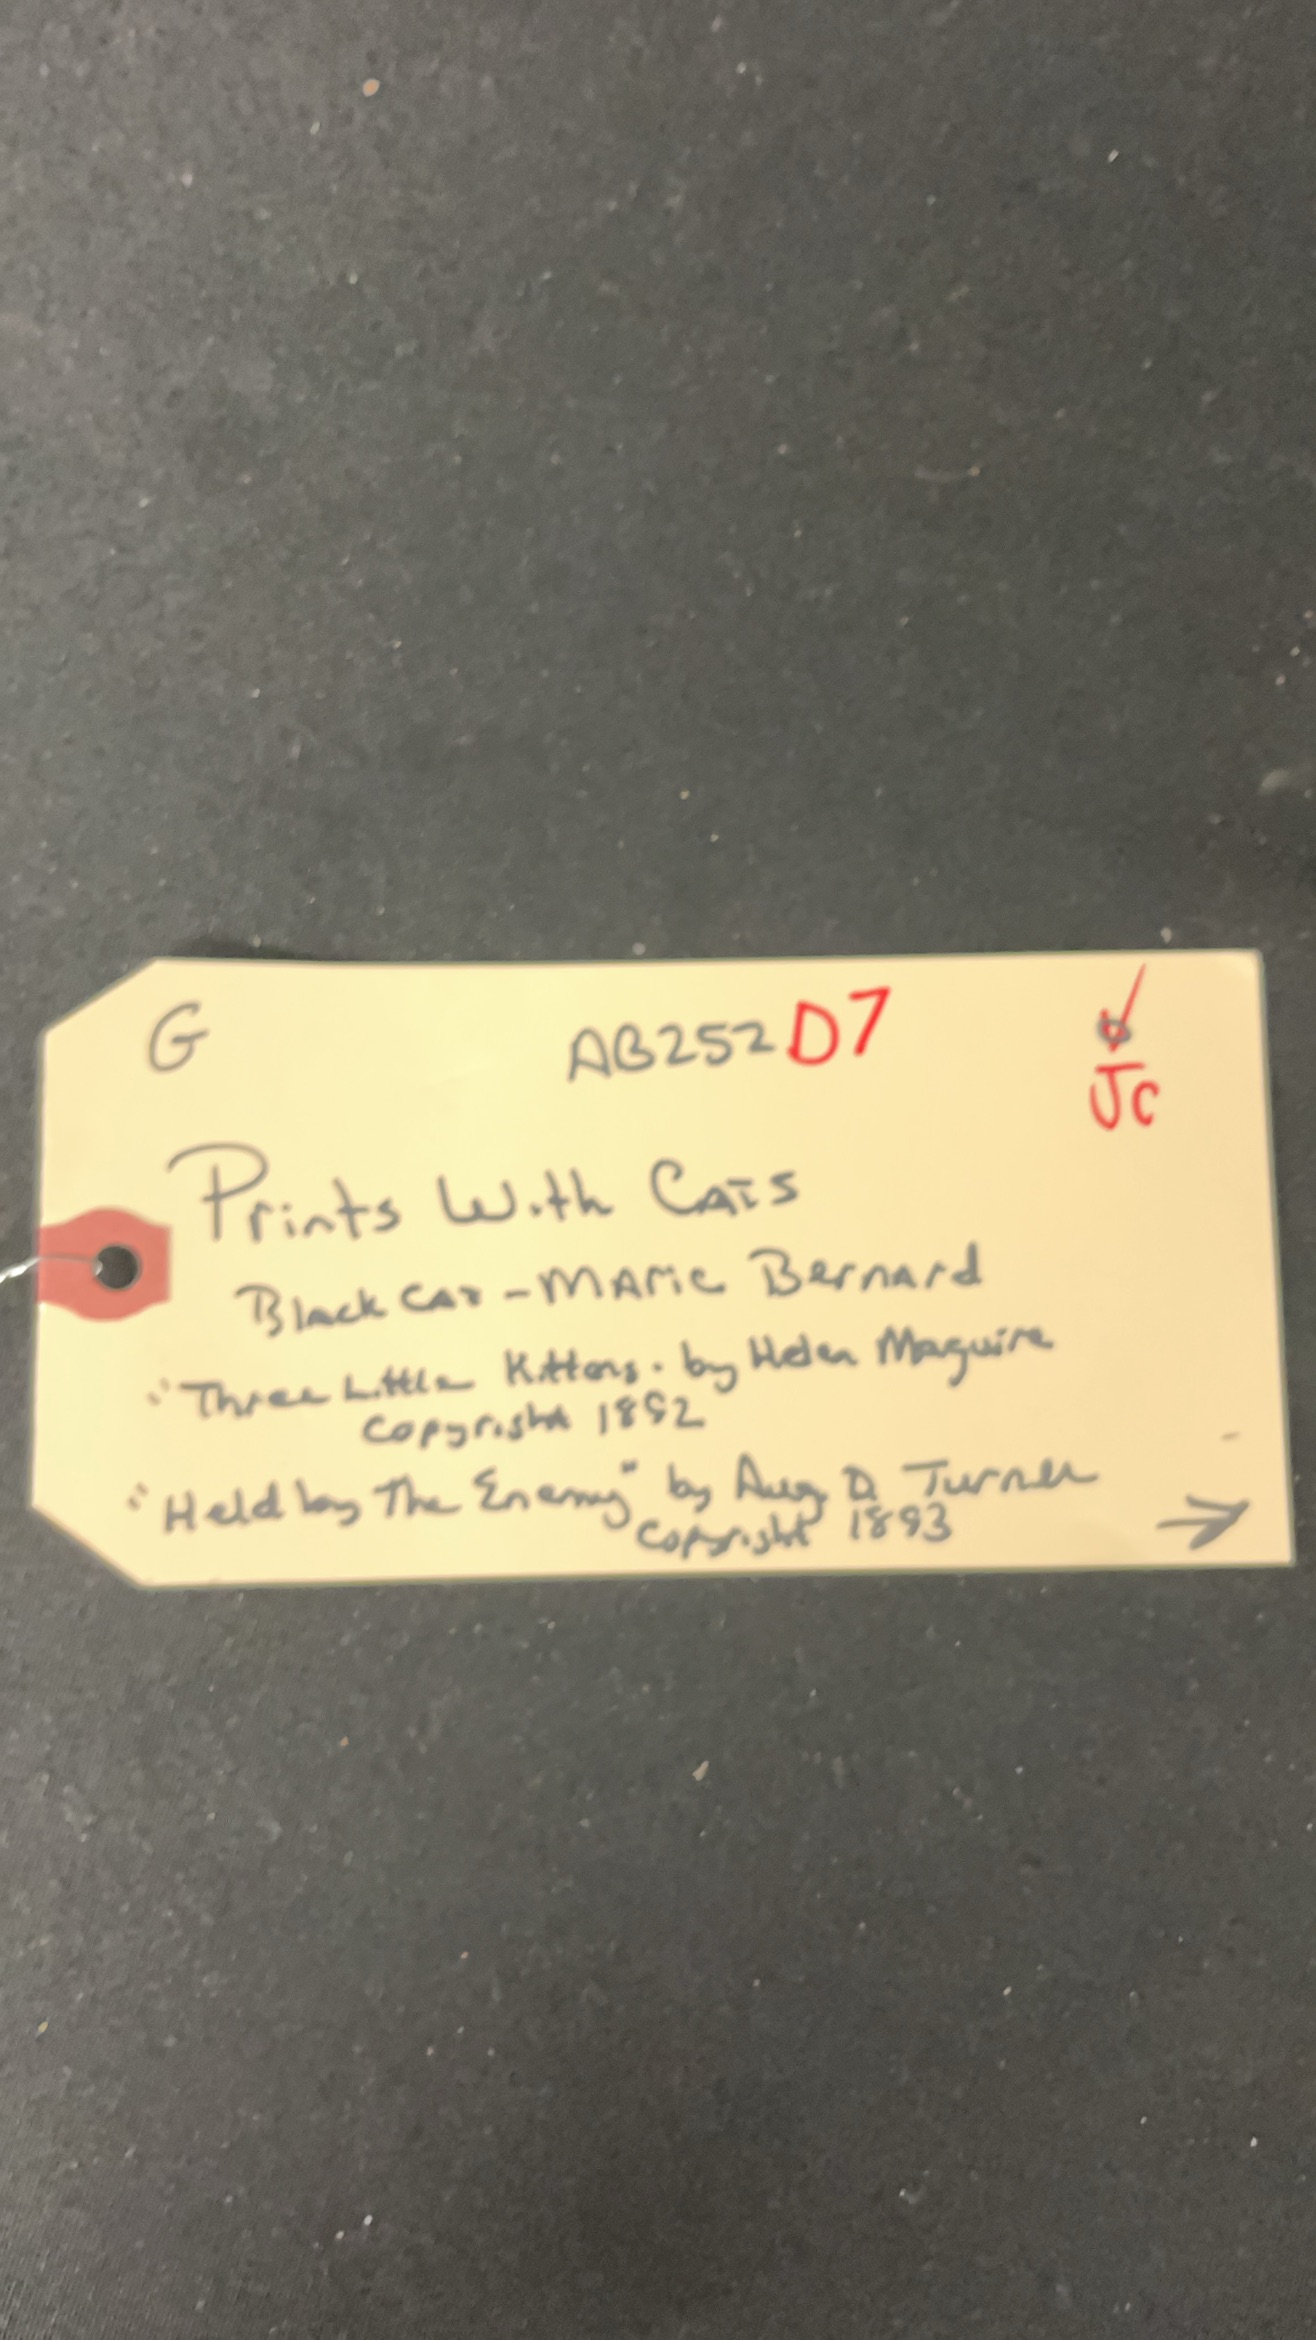 G AB252 D7
JC
Prints With Cats
Black Cat - Marie Bernard
"Three Little Kittens. by Helen Maguire
Copyright 1892
"Held by The Enemy" by Aug D. Turner
Copyright 1893
→